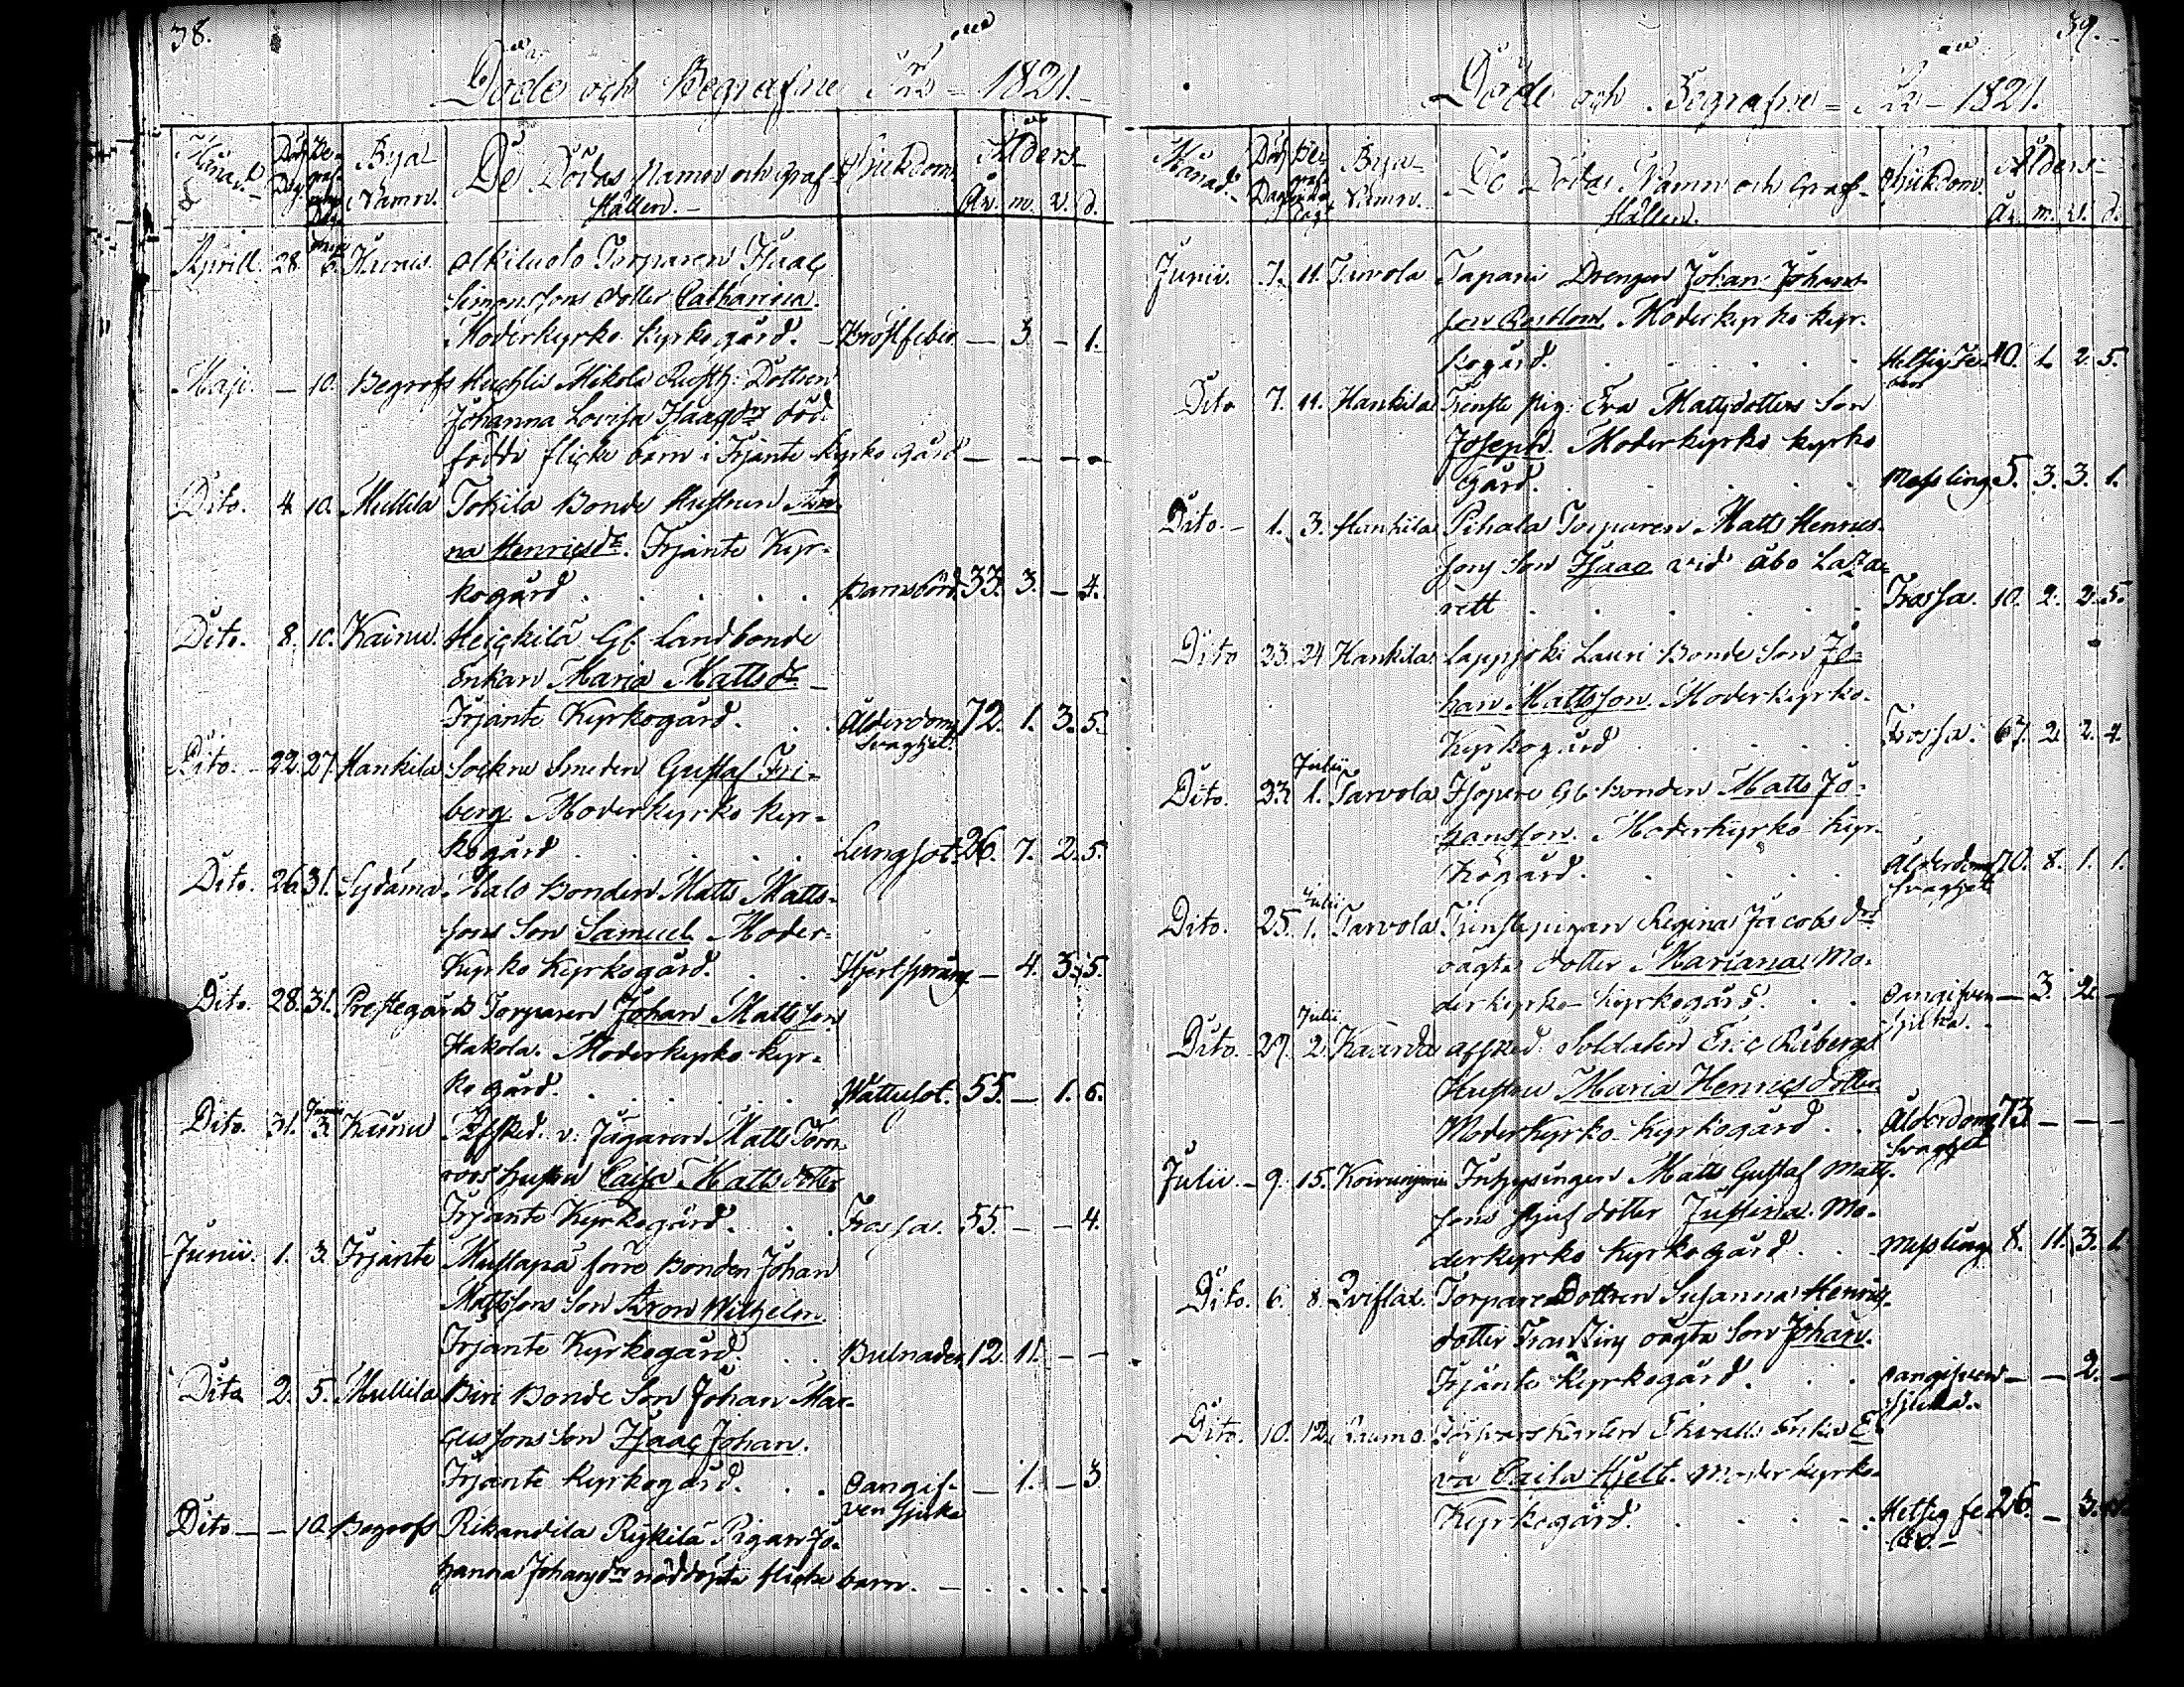 38.
Döde och Begrafne År 1821.
Månad Död Dag. Be- graf- nings Dag Bya Namn. De Dödas Namn och Graf Ställen. Sjukdom Ålders
År. m. v. d.
Aprill. 28. Maji 6. Torparen Isaac
Simonssons dotter Catharina.
Moderkyrko Kyrkogård. Bröstfeber — 3 — 1.
Maji. — 10. Begrofs Huchlis Mikola Rusth: Dottren
Johanna Lovisa Isaacsdr död-
födde flicke barn i Irjante Kyrko gård — — — —
Dito. 4. 10. Mullila Tokila Bonde Hustrun An-
na Henricsdr. Irjante Kyr-
kogård . . . . . Barnsbörd. 33. 3. — 4.
Dito. 8. 10. Kainu. Heickilä Gl. Landbonde
Enkan Maria Mattsdr
Irjante Kyrkogård. . . Ålderdoms 72. 1. 3. 5.
Svaghet.
Dito. 22. 27. Hankila Sockne Smeden Gustaf Fri-
berg Moderkyrko Kyr-
kogård . . . . . Lungsot. 26. 7. 2. 5.
Dito. 26. 31. Sydänma Halo Bonden Matts Matts-
sons Son Samuel Moder-
Kyrko Kyrkogård. . . Hjertsprång — 4. 3. 5.
Dito. 28. 31. Prestegårds Torparen Johan Mattsson
Hakola. Moderkyrko Kyr-
ko gård. . . . . . Wattusot. 55. — 1. 6.
Dito. 31. Junii 3. Kainu Afsked. v. Jägaren Matts Törn-
roos hustru Caisa Mattsdotter
Irjante Kyrkogård. . . Frossa. 55. — — 4.
Junii. 1. 3. Irjante Mustapä förre Bonden Johan
Mattssons Son Aron Wilhelm.
Irjante Kyrkogård. . . Bulnader 12. 11. — —
Dito 2. 5. Mullila Biri Bonde Son Johan Mar-
cussons Son Isaac Johan.
Irjante Kyrkogård. . . Oangif- — 1. — 3
ven Sjuka
Dito — — 10. Begrofs Rikandila Rykilä Pigan Jo-
hanna Johansdr nöddöpta flicke barn. — . . . .
39.
Döde och Begrafne År 1821.
Månad. Död Dag Be- graf- nings Dag Bya- Namn. De Dödas Namn och Graf- Ställen. Sjukdom. Ålders
År. m. v. d.
Junii. 7. 11. Tarvola Tapani Drengen Johan Johans-
son Moderkyrko Kyr-
kogård. . . . . . Hetsig Fe- 40. 1. 2. 5.
ber
Dito 7. 11. Hankila Tjenste pig: Eva Mattsdotters Son
Joseph. Moderkyrko Kyrko
Gård. . . . . . Messling 5. 3. 3. 1.
Dito. 1. 3. Hankila Pihala Torparen Matts Henrics-
sons Son Isaac vid Åbo Laza-
rett . . . . . Frossa. 10. 2. 2. 5.
Dito 23. 24 Hankila Lappjoki Lauri Bonde Son Jo-
han Mattsson. Moderkyrko-
Kyrkogård . . . . Frossa. 67. 2. 2. 4.
Dito. 23. Julii 1. Tarvola Isopere Gl. Bonden Matts Jo-
hansson. Moderkyrko Kyr-
kogård. . . . . . Ålderdoms 70. 8. 1. 1.
Svaghet
Dito. 25. Julii 1. Tarvola Tjenstepigan Regina Jacobsdrs
oägta dotter Mariana. Mo-
derkyrko Kyrkogård. . . Oangifven — 3. 2. —
Sjuka.
Dito. 27. Julii 2. Kaanda afsked. Soldaten Eric Rubergs
Hustru Maria Henricsdotter
Moderkyrko Kyrkogård. . . Ålderdoms 73. — — —
Svaghet
Julii. 9. 15. Koivuniemi Inhysingen Matts Gustaf Matts-
sons dotter Justina. Mo-
derkyrko Kyrkogård. . . Messling 8. 11. 3. 1.
Dito. 6. 8. Qviflax. Torpare Dottren Susanna Henrics-
dotter oägta Son Johan.
Irjante Kyrkogård. . . Oangifven — — 2. —
Sjuka.
Dito. 10. 12. Raumo Enka E-
va Caisa Hjelt. Moderkyrko-
Kyrkogård. . . . . . Hetsig fe- 26. — 3.
ber. —